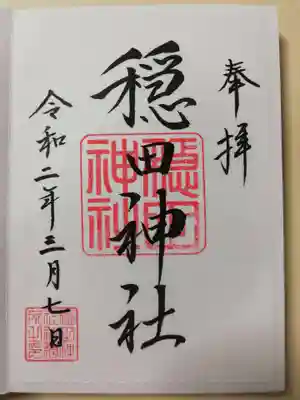 奉拝
穏田神社
令和二年三月七日
穏田神社